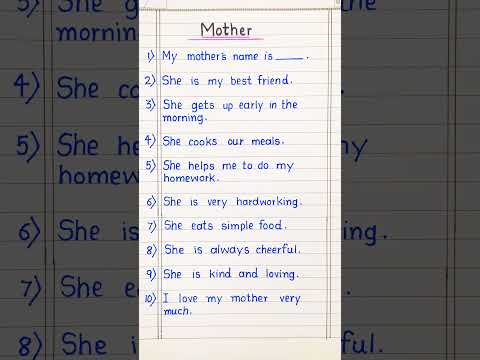 Mother
1) My mother's name is _____ .
2) She is my best friend.
3) She gets up early in the
morning.
4) She cooks our meals.
5) She helps me to do my
homework.
6) She is very hardworking.
7) She eats simple food.
8) She is always cheerful.
9) She is kind and loving.
10) I love my mother very
much.